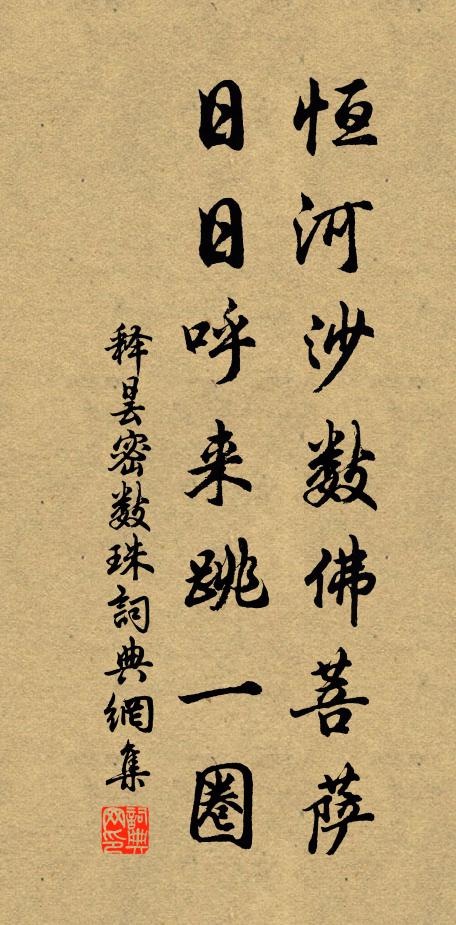 恒河沙数佛菩萨
日日呼来跳一圈
释昙密数珠詞典網集
詞典网印